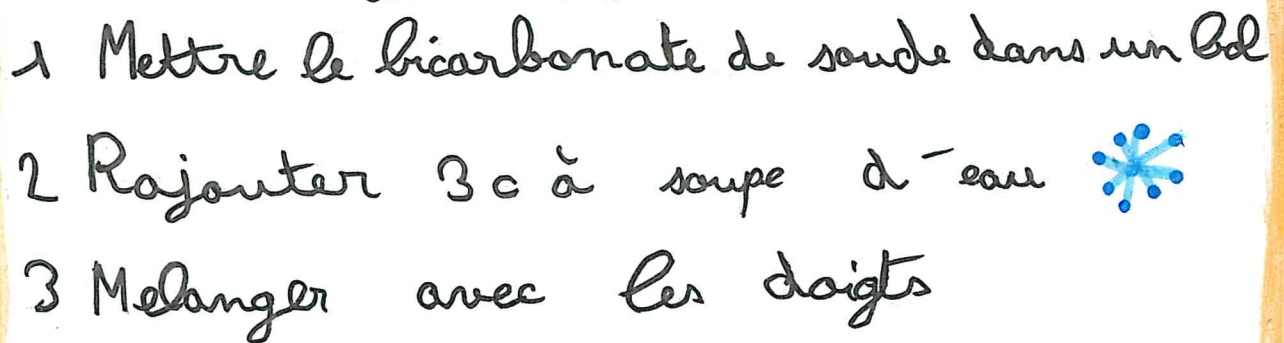 1 Mettre le bicarbonate de soude dans un bol
2 Rajouter 3 c à soupe d'eau
3 Melanger avec les doigts